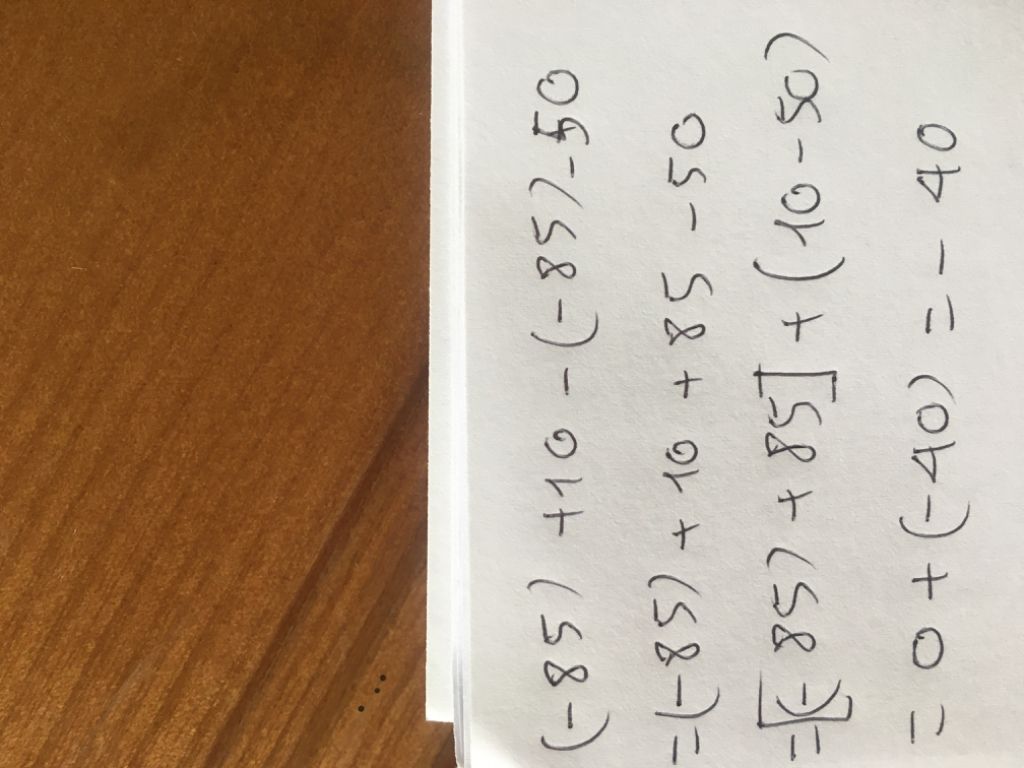 (-85) +10 - (-85) - 50
=(-85) + 10 + 85 - 50
=[(-85) + 85] + (10 - 50)
= 0 + (-40) = - 40